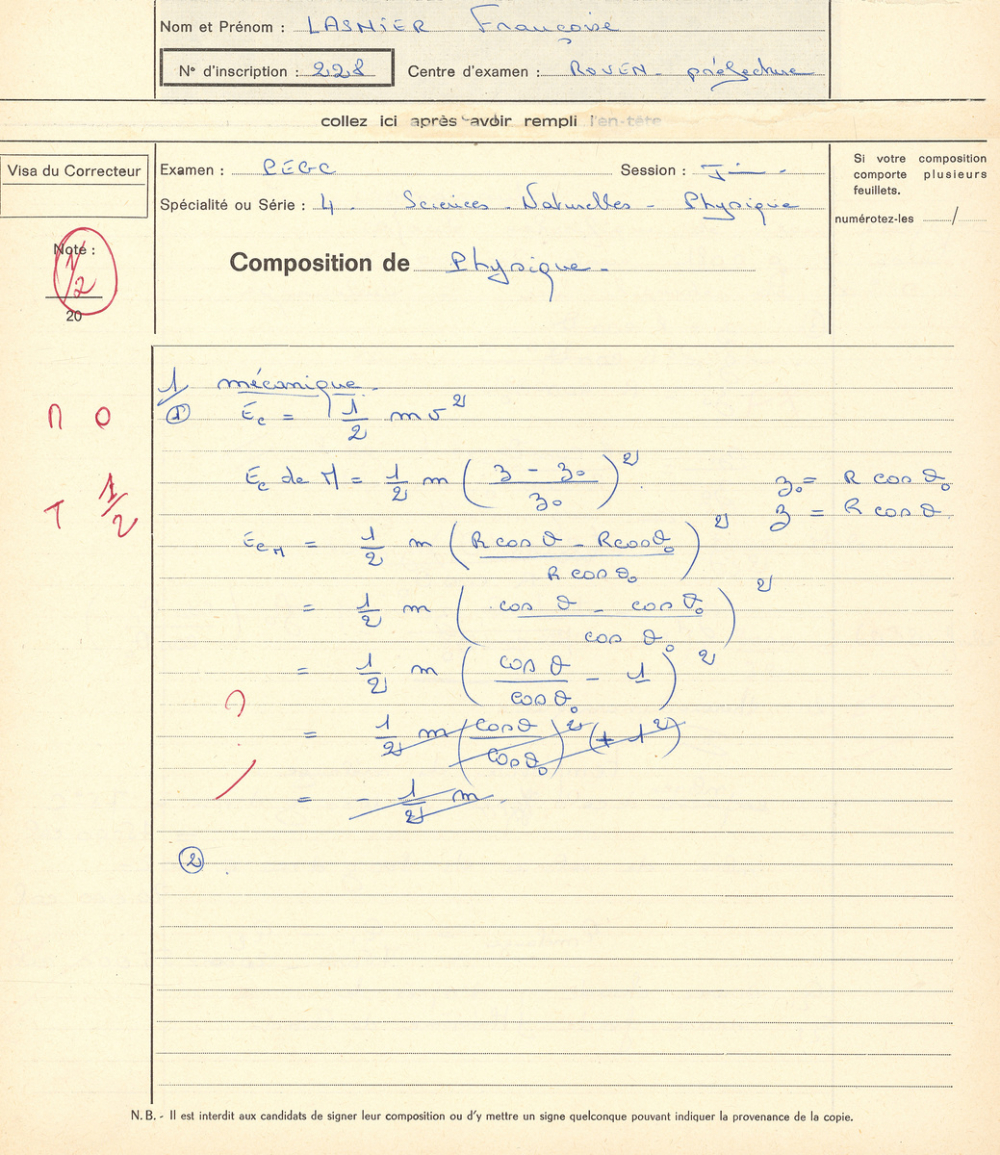 Nom et Prénom : LASNIER Françoise
N° d'inscription : 228 Centre d'examen : ROUEN - préfecture
collez ici après avoir rempli l'en-tête
Visa du Correcteur
Examen : PEGC Session : Juin -
Spécialité ou Série : 4 . Sciences - Naturelles - Physique
Si votre composition
comporte plusieurs
feuillets.
numérotez-les /
Noté :
1/2
20
Composition de Physique -
1/ mécanique -
① Ec = 1/2 m v²
Π 0
Ec de M = 1/2 m ( (z - z₀) / z₀ )² z₀ = R cos θ₀
T 1/2
z = R cos θ
Ec M = 1/2 m ( (R cos θ - R cos θ₀) / (R cos θ₀) )²
= 1/2 m ( (cos θ - cos θ₀) / (cos θ₀) )²
= 1/2 m ( cos θ / cos θ₀ - 1 )²
?
= 1/2 m ( cos θ / cos θ₀ )² (+ 1²)
= - 1/2 m
②
N. B. - Il est interdit aux candidats de signer leur composition ou d'y mettre un signe quelconque pouvant indiquer la provenance de la copie.